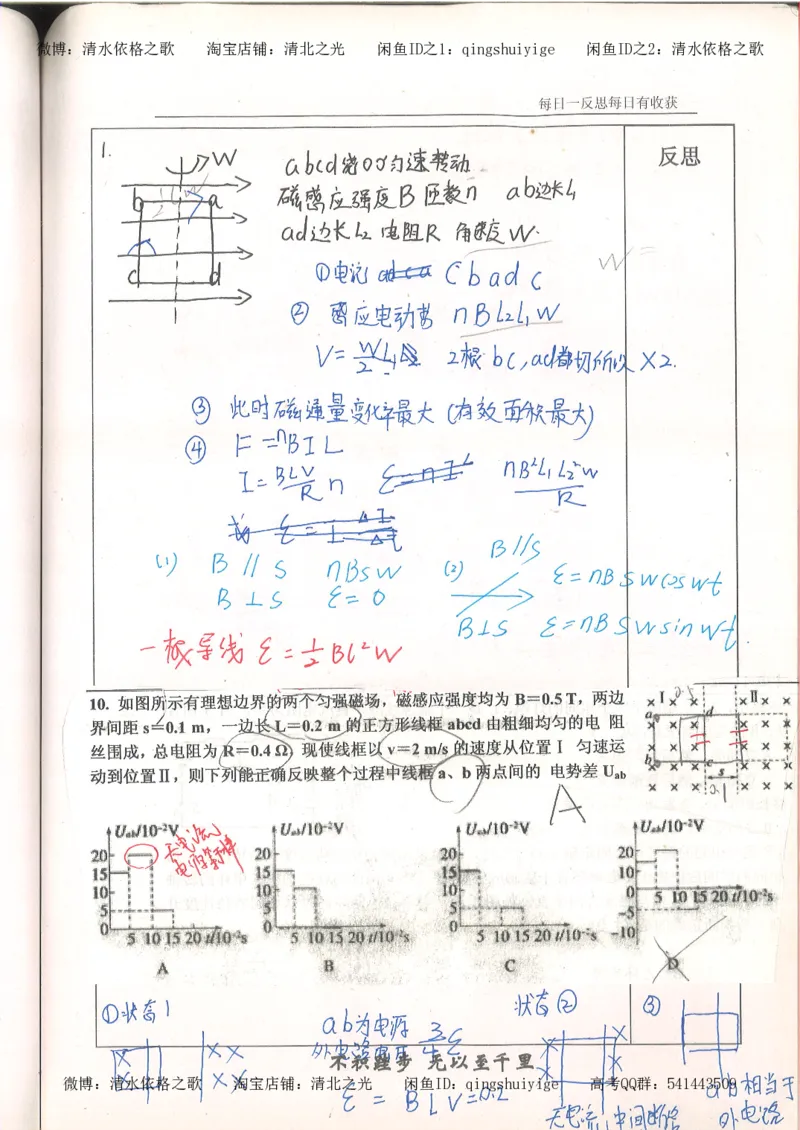 微博：清水依格之歌 淘宝店铺：清北之光 闲鱼ID之1：qingshuiyige 闲鱼ID之2：清水依格之歌
每日一反思每日有收获
反思
1.
W
b a
c d
abcd绕OO'匀速转动
磁感应强度B 匝数n ab边长L₁
ad边长L₂ 电阻R 角速度W.
①电流 C b a d c
② 感应电动势 nBL₂L₁W
V= WL₁/2 2根 bc,ad都切所以×2.
③ 此时磁通量变化率最大 (有效面积最大)
④ F=nBIL
I= BLV/R n nB²L₁L₂²w/R
(1) B // S nBSW
B ⊥ S ε= 0
(2) B//S ε=nBSwcoswt
B⊥S ε=nBSwsinwt.
一根导线 ε=½Bl²W
10. 如图所示有理想边界的两个匀强磁场，磁感应强度均为 B＝0.5 T，两边
界间距 s＝0.1 m，一边长 L＝0.2 m 的正方形线框 abcd 由粗细均匀的电 阻
丝围成，总电阻为 R＝0.4 Ω，现使线框以 v＝2 m/s 的速度从位置Ⅰ 匀速运
动到位置Ⅱ，则下列能正确反映整个过程中线框 a、b 两点间的 电势差 Uab
A
Ⅰ Ⅱ
a d
b c
s
0.1
Uab/10⁻²V Uab/10⁻²V Uab/10⁻²V Uab/10⁻²V
20 15 10 5 0 5 10 15 20 t/10⁻²s
20 15 10 5 0 5 10 15 20 t/10⁻²s
20 15 10 5 0 5 10 15 20 t/10⁻²s
20 10 0 −5 −10 5 10 15 20 t/10⁻²s
无电流
A B C D
①状态1
ab为电源
外电路电压 ¾ε
状态②
③
不积跬步 无以至千里
微博：清水依格之歌 淘宝店铺：清北之光 闲鱼ID：qingshuiyige 高考QQ群：541443509
ε = BLV=0.2
无电流,中间断路
ab相当于
外电路